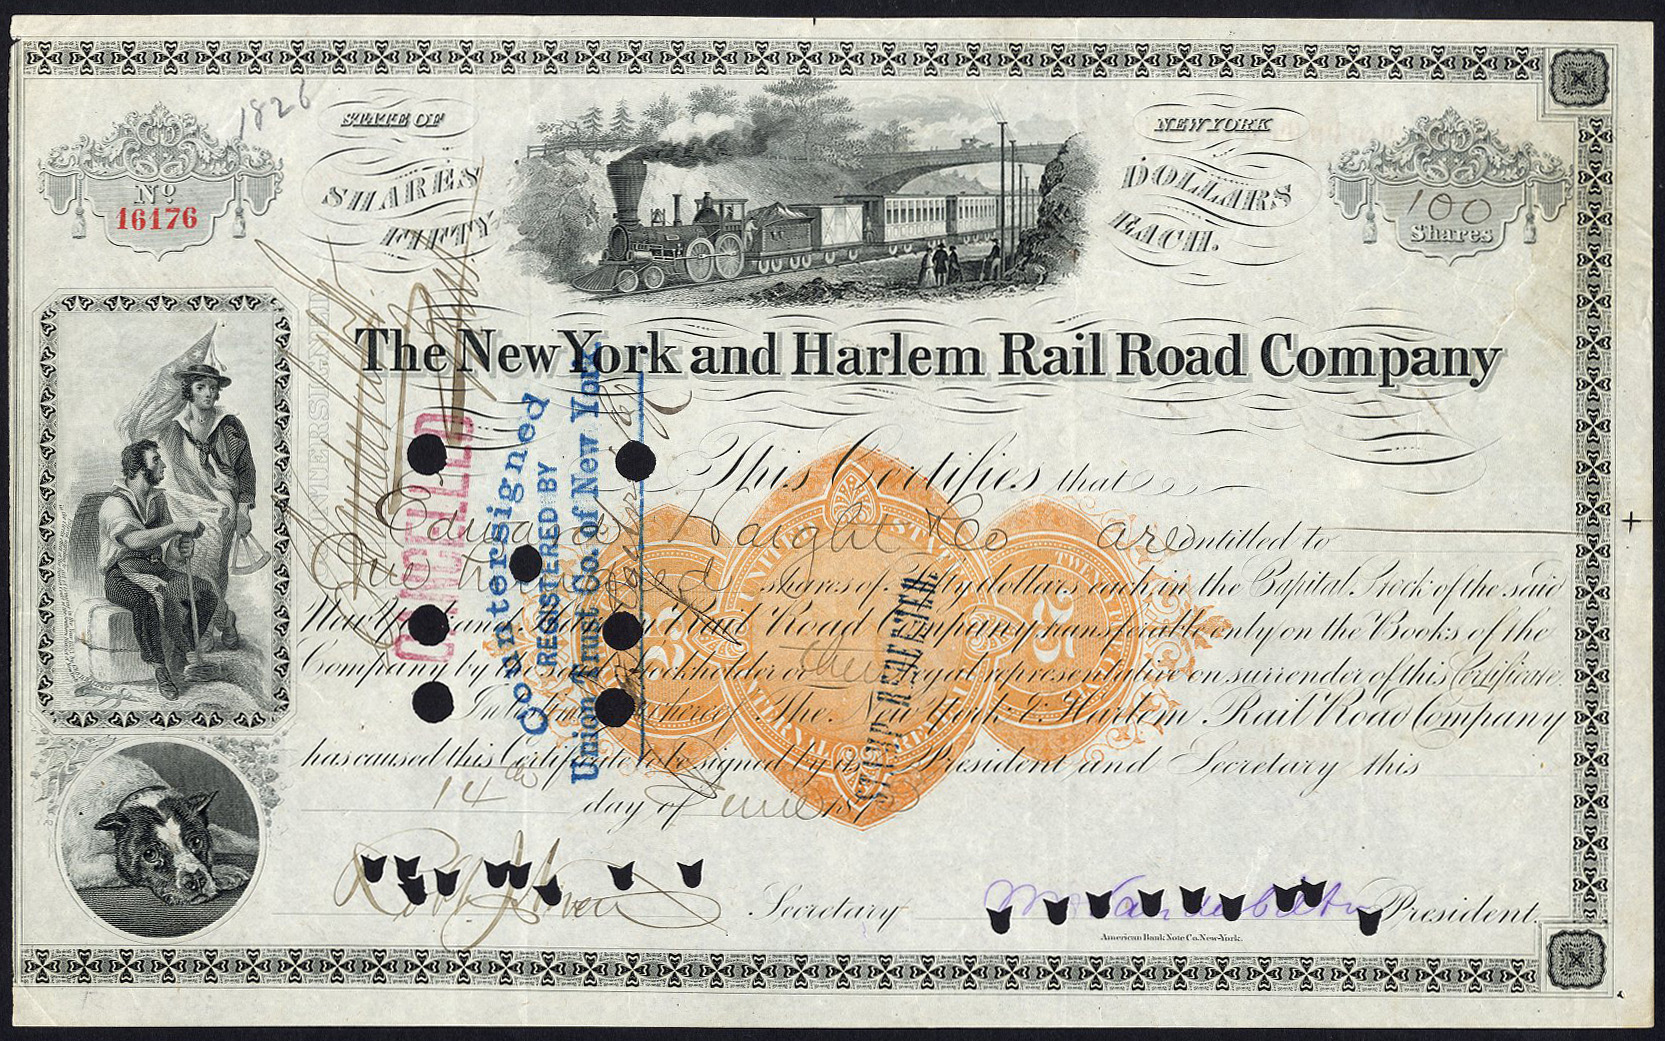 1826
STATE OF
NEW YORK
No
16176
SHARES
FIFTY
DOLLARS
EACH.
100
Shares
The New York and Harlem Rail Road Company
CANCELLED
Countersigned
REGISTERED BY
Union Trust Co. of New York
This Certifies that
Edward Haight & Co are entitled to
One hundred shares of Fifty dollars each in the Capital Stock of the said
New York and Harlem Rail Road Company transferable only on the Books of the
Company by the said Stockholder or their legal representative on surrender of this Certificate.
In Witness Whereof The New York & Harlem Rail Road Company
has caused this Certificate to be signed by its President and Secretary this
14th day of June 187
STAMP REDEEMED.
Secretary
Wm H Vanderbilt President.
American Bank Note Co. New-York.